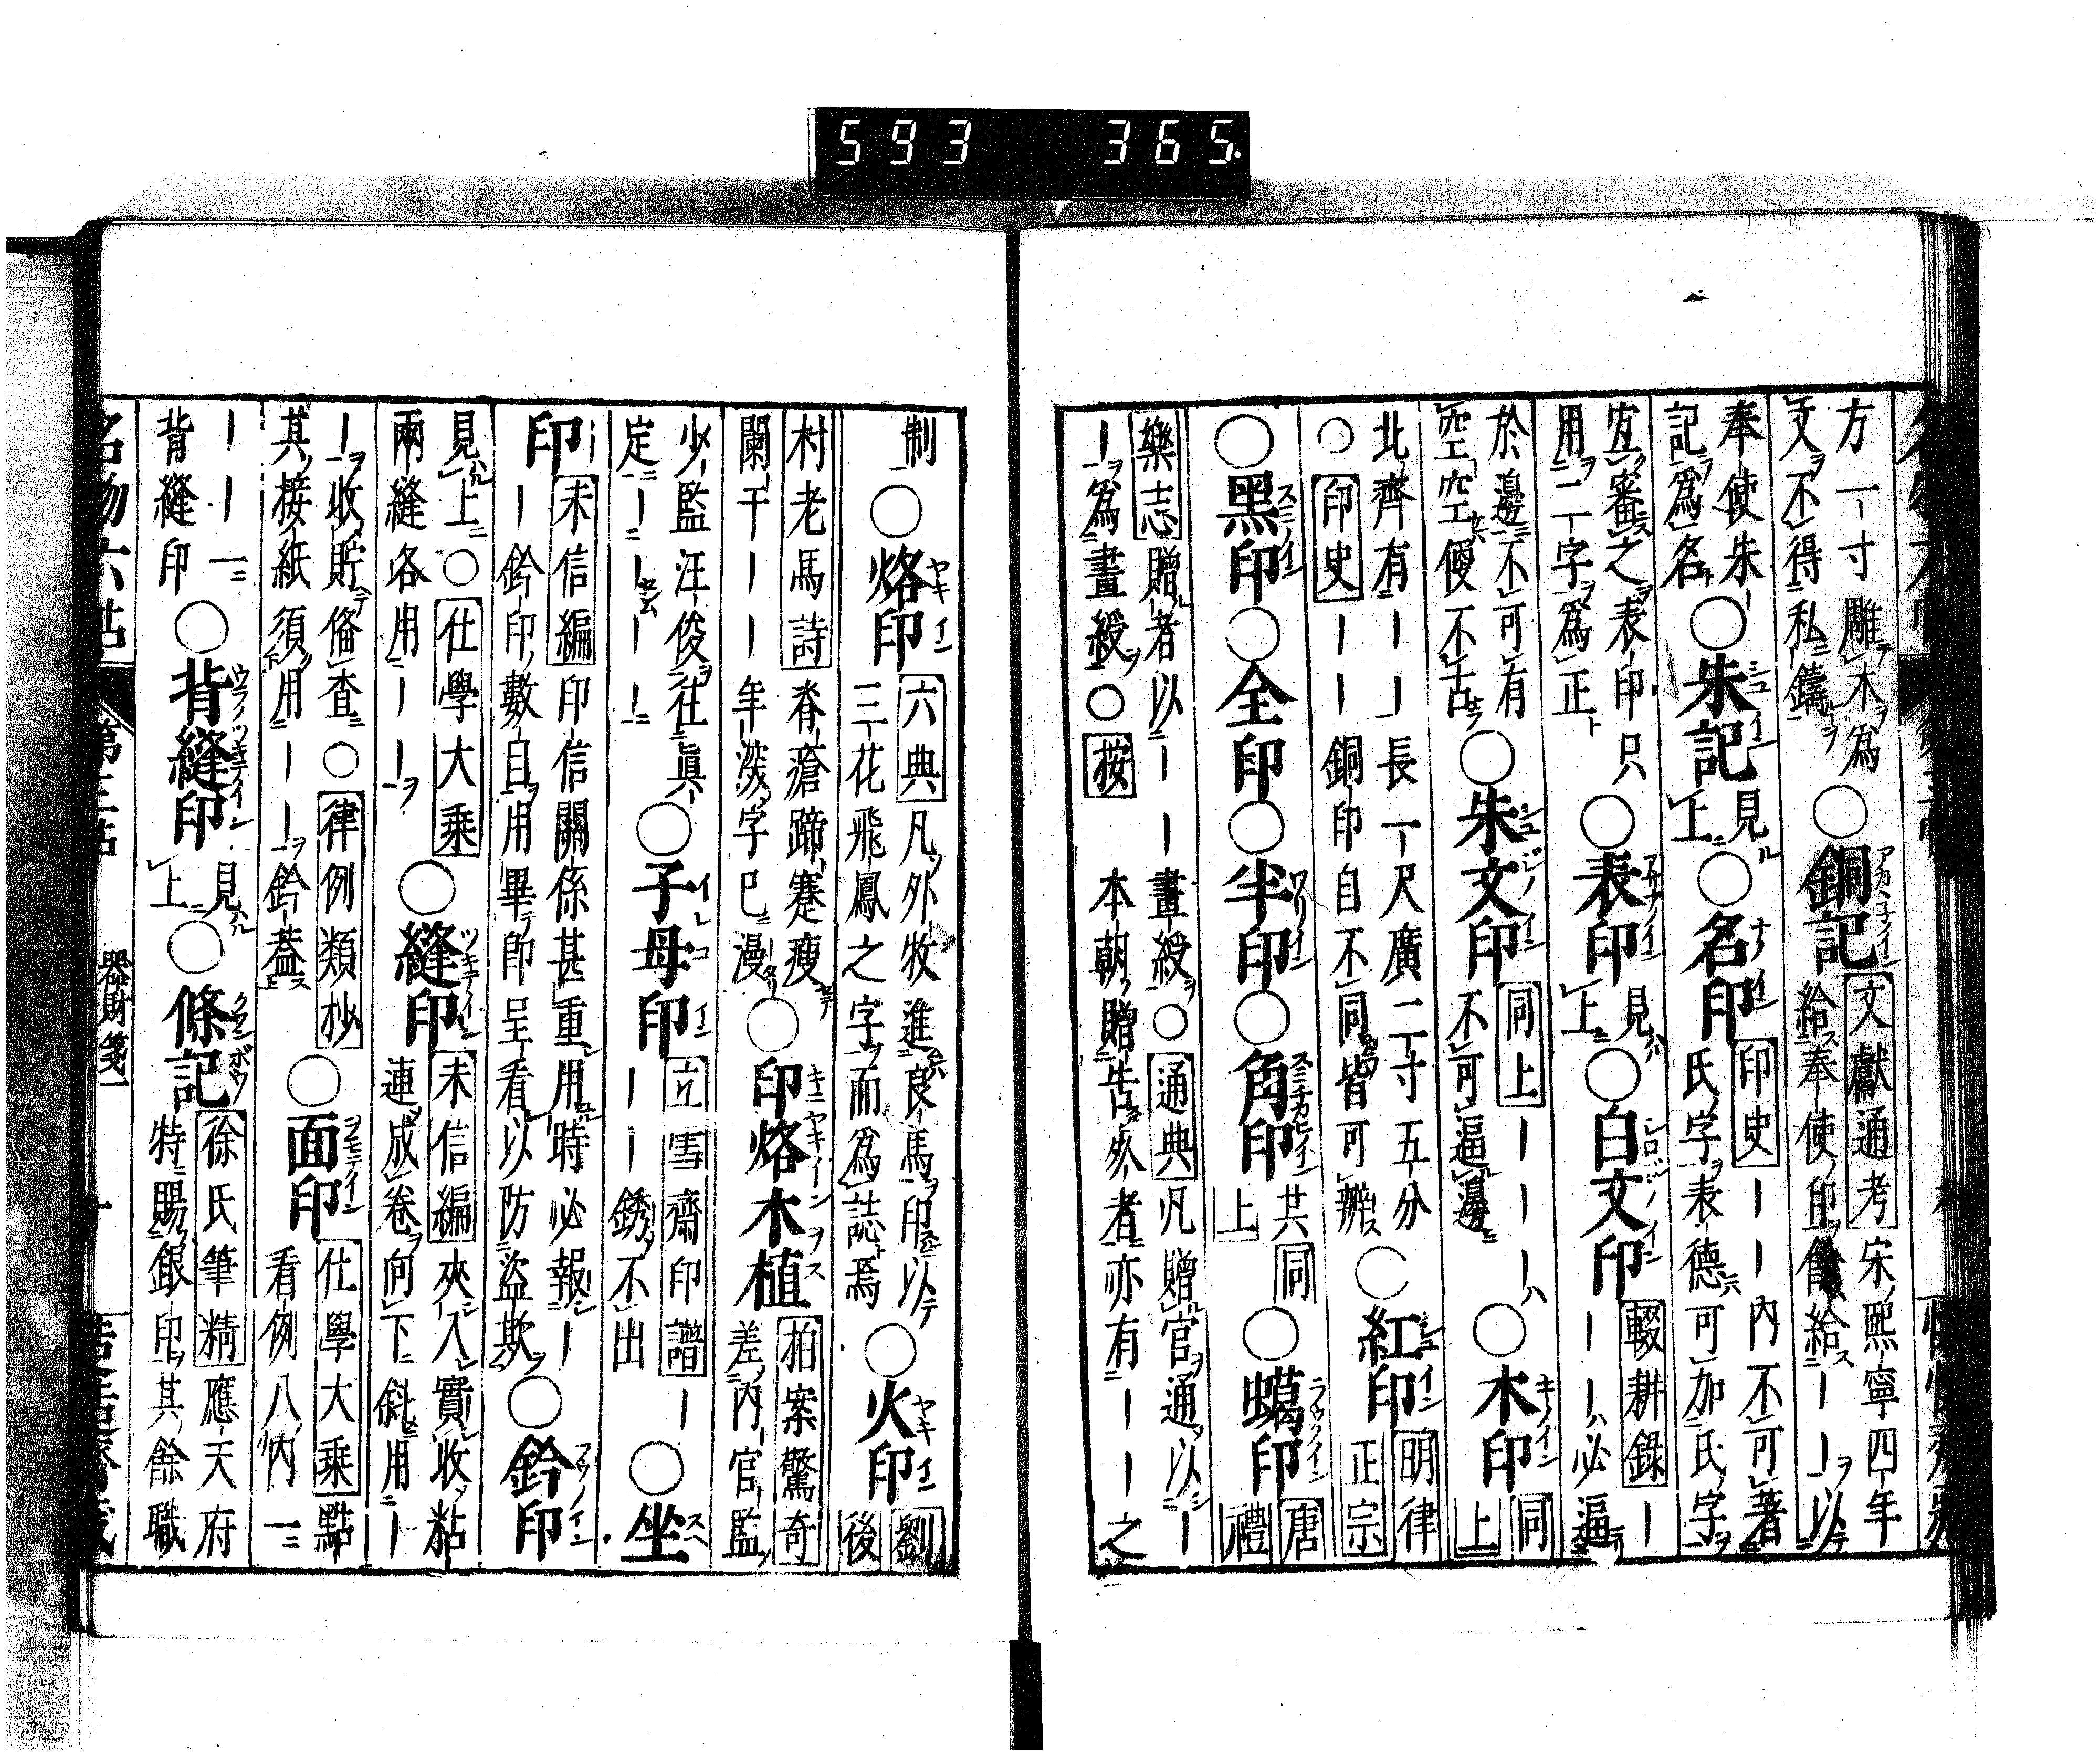 方一寸雕木為
文不得私鑄
○銅記
文獻通考宋熙寧四年
給奉使印餘給――以
奉使朱―
記為名
○朱記見上○名印
印史――内不可著
氏字表德可加氏字
宜審之表印只
用二字為正
○表印見上○白文印
輟耕録―
―――必逼
於邊不可有
空空便不古
○朱文印
同上―――
不可逼邊
○木印同上
北齊有―――長一尺廣二寸五分
○印史―――銅印自不同皆可辨
○紅印明律正宗
○黑印○全印○半印○角印共同上○蠲印唐禮
樂志贈者以――畫綬○通典凡贈官通以―
―為畫綬○按 本朝贈告終者亦有―――之
制○烙印
六典凡外牧進良馬印以
三花飛鳳之字而為誌焉
○火印劉後
村老馬詩脊瘡蹄蹇瘦
闌干――年深字已漫
○印烙木植
拍案驚奇
差内官監
少監汪俊往真
定―――――
○子母印
立雪齋印譜―
―――銹不出
○坐
印
未信編印信關係甚重用時必報―
―鈐印數目用畢即呈看以防盜欺
○鈐印
見上○仕學大乘
兩縫各用――
○縫印
未信編夾入實收粘
連成卷向下斜用―
―收貯備查○律例類抄
其接紙須用――鈐蓋
○面印
仕學大乘點
看例八内一
―――一
背縫印
○背縫印見上○條記
徐氏筆精應天府
特賜銀印其餘職
名物六帖 第三帖 器財箋一